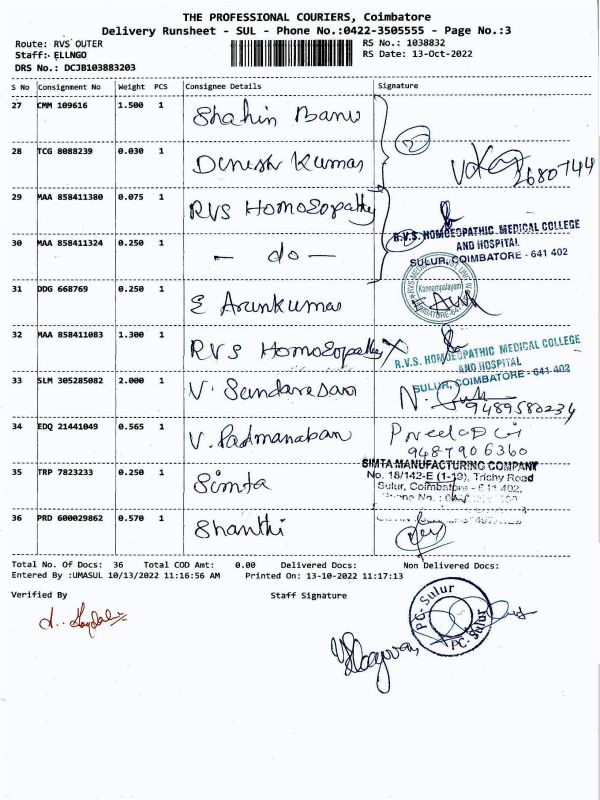 THE PROFESSIONAL COURIERS, Coimbatore
Delivery Runsheet - SUL - Phone No.:0422-3505555 - Page No.:3
Route: RVS OUTER
RS No.: 1038832
Staff: ELLNGO
RS Date: 13-Oct-2022
DRS No.: DCJB103883203
S No Consignment No Weight PCS Consignee Details Signature
27 CMM 109616 1.500 1 Shahin Banu
28 TCG 8088239 0.030 1 Dinesh Kumar
2680744
29 MAA 858411380 0.075 1 RVS Homoeopathy
R.V.S. HOMOEOPATHIC MEDICAL COLLEGE
AND HOSPITAL
SULUR, COIMBATORE - 641 402
30 MAA 858411324 0.250 1 - do -
31 DDG 668769 0.250 1 E Arunkumar
Kannampalayam
32 MAA 858411083 1.300 1 RVS Homoeopathy
R.V.S. HOMOEOPATHIC MEDICAL COLLEGE
AND HOSPITAL
SULUR, COIMBATORE - 641 402
33 SLM 305285082 2.000 1 V. Sundaresan
9489580234
34 EDQ 21441049 0.565 1 V. Padmanaban
9487906360
SIMTA MANUFACTURING COMPANY
35 TRP 7823233 0.250 1 Simta
No. 18/142-E (1-19), Trichy Road
Sulur, Coimbatore - 641 402.
36 PRD 600029862 0.570 1 Shanthi
Total No. Of Docs: 36 Total COD Amt: 0.00 Delivered Docs: Non Delivered Docs:
Entered By :UMASUL 10/13/2022 11:16:56 AM Printed On: 13-10-2022 11:17:13
Verified By Staff Signature
PC-Sulur
PC-Sulur